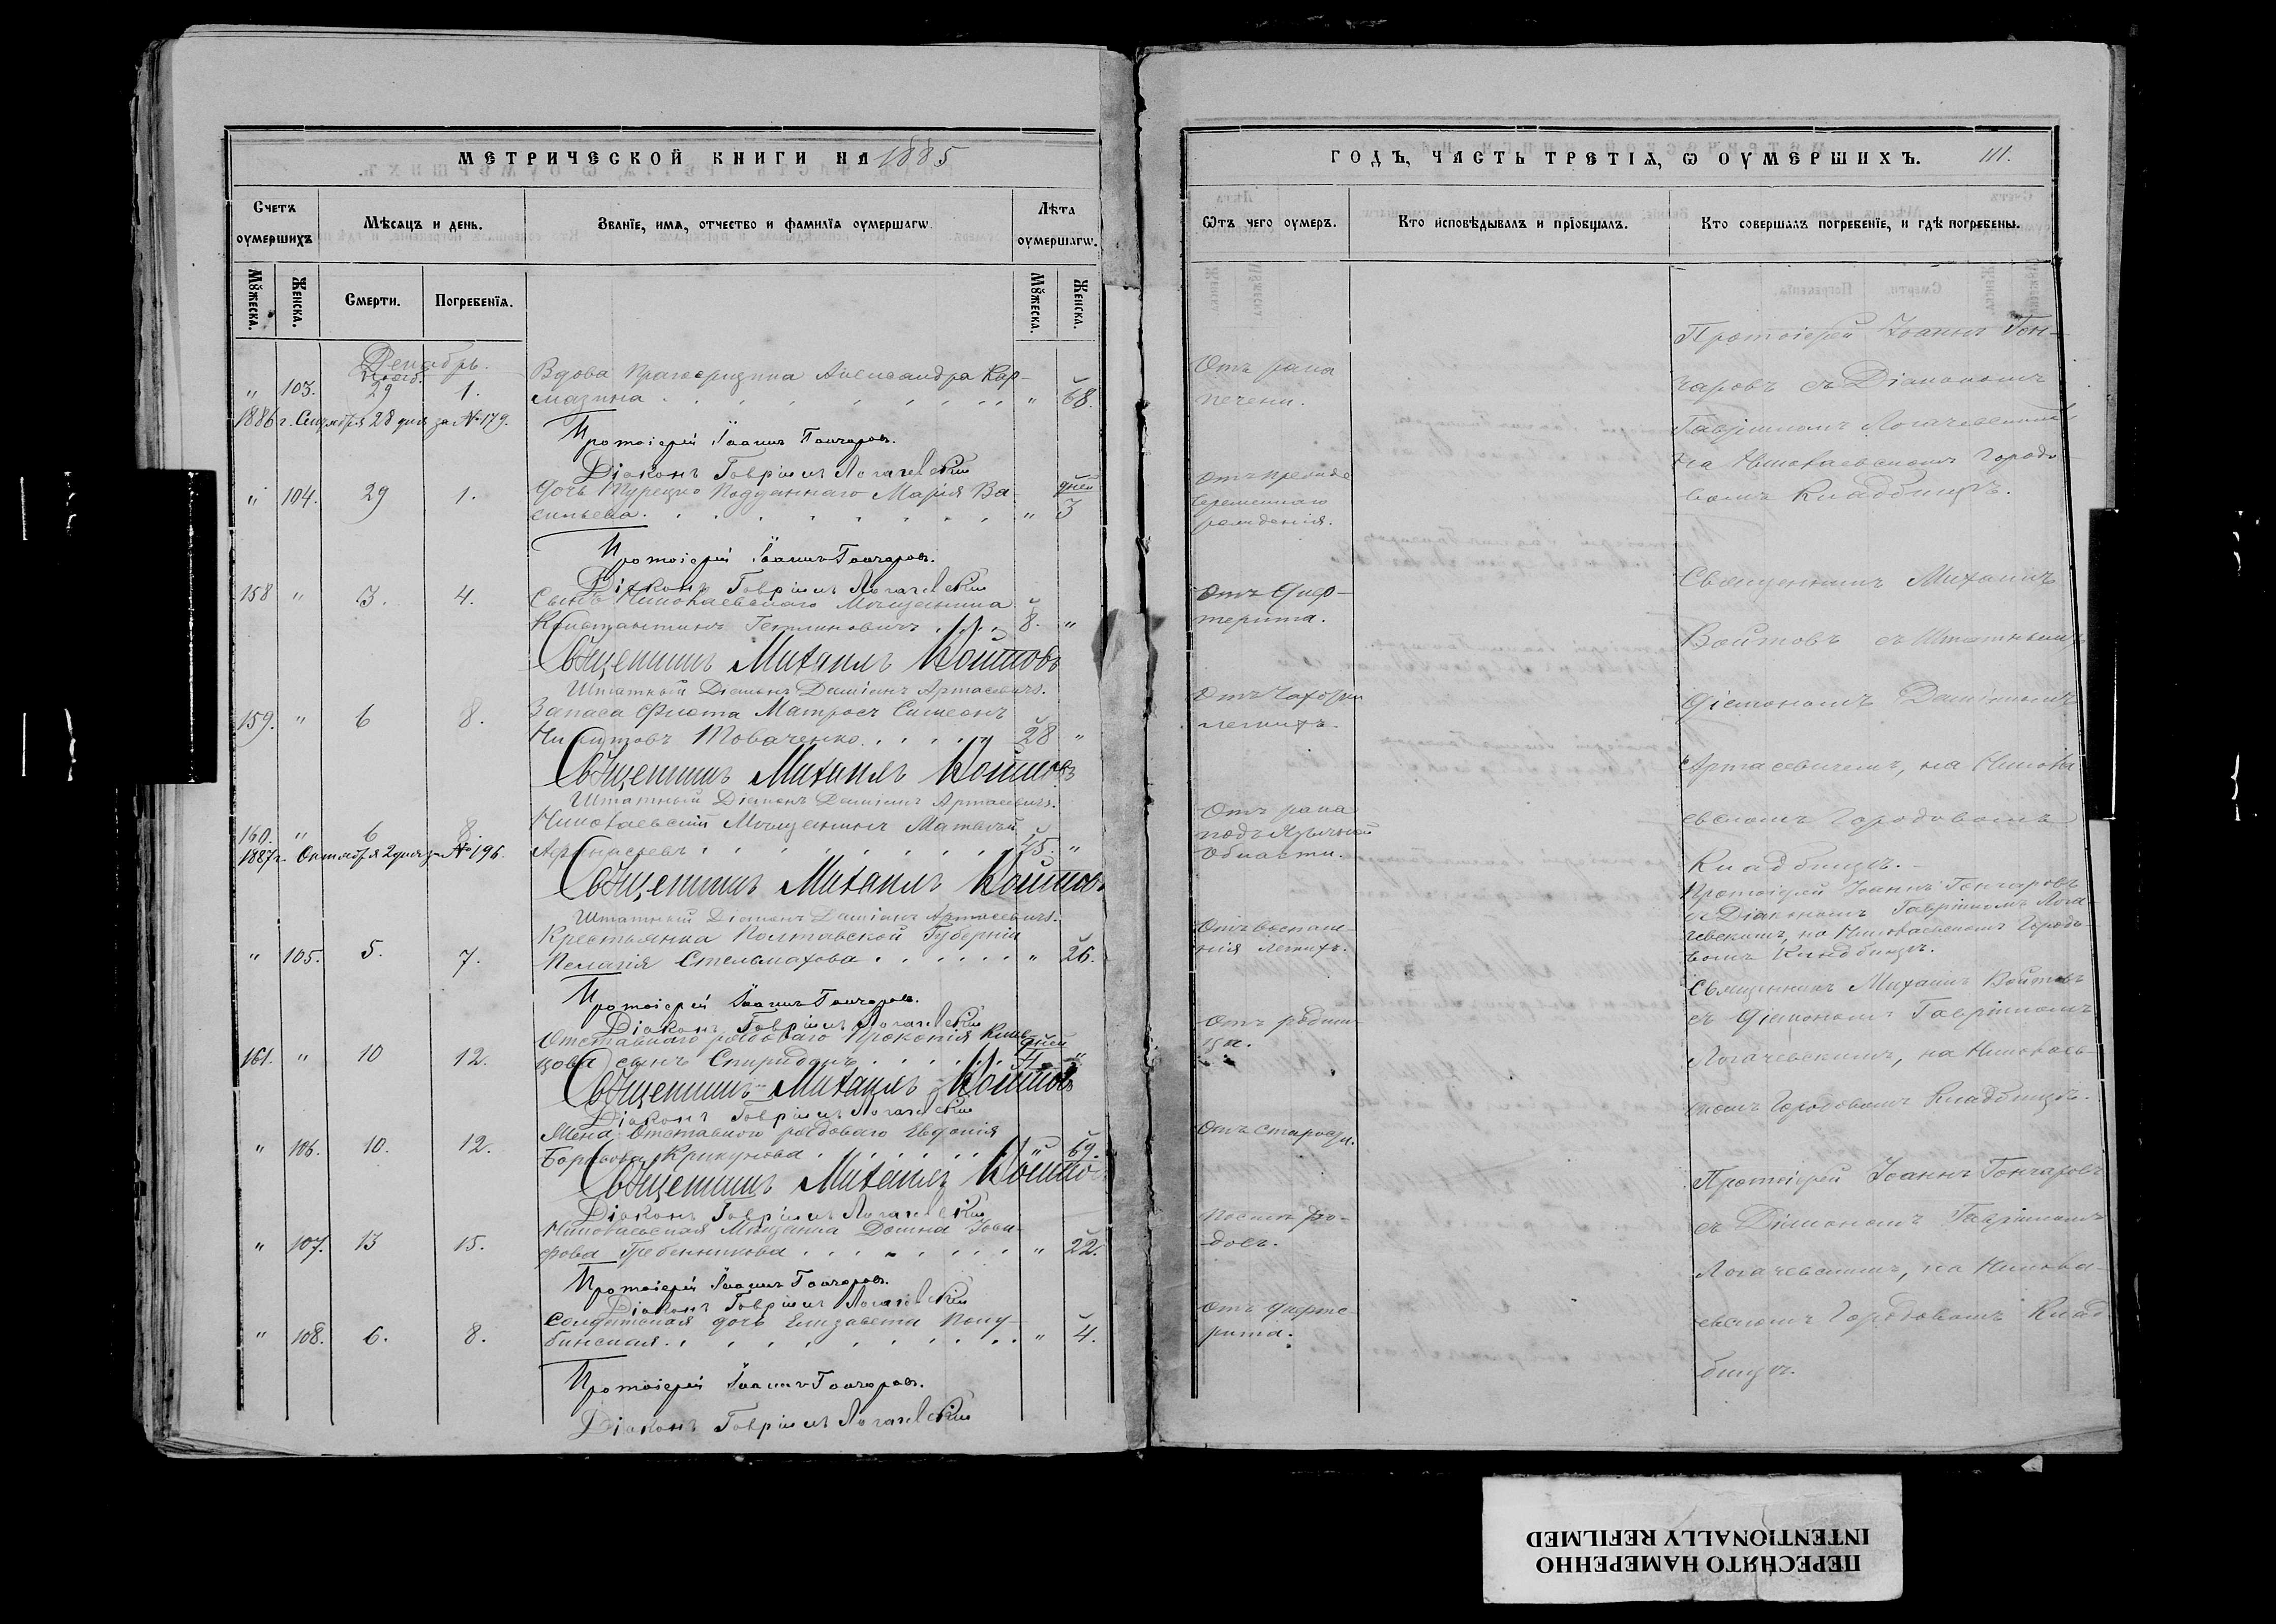 МЕТРИЧЕСКОЙ КНИГИ НА 1885
Счетъ оумершихъ
Мѣсяцъ и день.
Званїе, имя, отчество и фамилїя оумершагѡ.
Лѣта оумершагѡ.
Мꙋжеска.
Женска.
Смерти.
Погребенїя.
Мꙋжеска.
Женска.
Декабрь.
Нояб.
" 103. 29 1. Вдова Александра Кар-
мазина " 68.
1886 г. Сентября 28 дня за № 179.
Протоіерей Іоаннъ Гончаровъ.
Діаконъ Гавріилъ Логачевскій
" 104. 29 1. Дочь Турецко Подданнаго Марія Ва- дней
сильева " 3
Протоіерей Іоаннъ Гончаровъ.
Діаконъ Гавріилъ Логачевскій
158 " 3. 4. Сынъ Николаевскаго Мѣщанина
Константинъ 8. "
Священникъ Михаилъ Войтовъ
Штатный Діаконъ Даміанъ Артасевичъ.
159. " 6 8. Запаса Флота Матросъ Симеонъ
Никитовъ Товаченко 28 "
Священникъ Михаилъ Войтовъ
Штатный Діаконъ Даміанъ Артасевичъ.
160. " 6 8. Николаевскій Мѣщанинъ Матвѣй
1887 г. Октября 2 дня за № 196. "
Священникъ Михаилъ Войтовъ
Штатный Діаконъ Даміанъ Артасевичъ.
" 105. 5. 7. Крестьянка Полтавской Губерніи
Пелагія Стельмахова " 26.
Протоіерей Іоаннъ Гончаровъ.
Діаконъ Гавріилъ Логачевскій
161. " 10 12. Отставнаго рядоваго Прокопія дней
сынъ Спиридонъ "
Священникъ Михаилъ Войтовъ
Діаконъ Гавріилъ Логачевскій
" 106. 10. 12. Жена Отставного рядоваго Евдокія
Крикунова " 69.
Священникъ Михаилъ Войтовъ
Діаконъ Гавріилъ Логачевскій
" 107. 13 15. Николаевская Мѣщанка Домна Іоси-
фова Гребенникова " 22.
Протоіерей Іоаннъ Гончаровъ.
Діаконъ Гавріилъ Логачевскій
" 108. 6. 8. Солдатская дочь Елизавета
" 4.
Протоіерей Іоаннъ Гончаровъ.
Діаконъ Гавріилъ Логачевскій
ГОДЪ, ЧАСТЬ ТРЕТІЯ, Ѡ ОУМЕРШИХЪ. 111.
Ѿтъ чего оумеръ.
Кто исповѣдывалъ и прїобщалъ.
Кто совершалъ погребенїе, и гдѣ погребены.
Отъ рака
печени.
Отъ прежде
временнаго
рожденія.
Отъ Диф-
терита.
Отъ Чахотки
легкихъ.
Отъ рака
подъязычной
области.
Отъ воспале-
нія легкихъ.
Отъ родим-
ца.
Отъ старости.
Послѣ ро-
довъ.
Отъ дифте-
рита.
Протоіерей Іоаннъ Гон-
чаровъ съ Діакономъ
Гавріиломъ Логачевскимъ
На Николаевскомъ Городо-
вомъ Кладбищѣ.
Священникъ Михаилъ
Войтовъ съ Штатнымъ
Діакономъ Даміаномъ
Артасевичемъ, на Никола
евскомъ Городовомъ
Кладбищѣ.
Протоіерей Іоаннъ Гончаровъ
съ Діакономъ Гавріиломъ Лога-
чевскимъ, на Николаевскомъ Городо-
вомъ Кладбищѣ.
Священникъ Михаилъ Войтовъ
съ Діакономъ Гавріиломъ
Логачевскимъ, на Николаев-
скомъ Городовомъ Кладбищѣ.
Протоіерей Іоаннъ Гончаровъ
съ Діакономъ Гавріиломъ
Логачевскимъ, на Никола-
евскомъ Городовомъ Клад
бищѣ.
ПЕРЕСНЯТО НАМЕРЕННО
INTENTIONALLY REFILMED